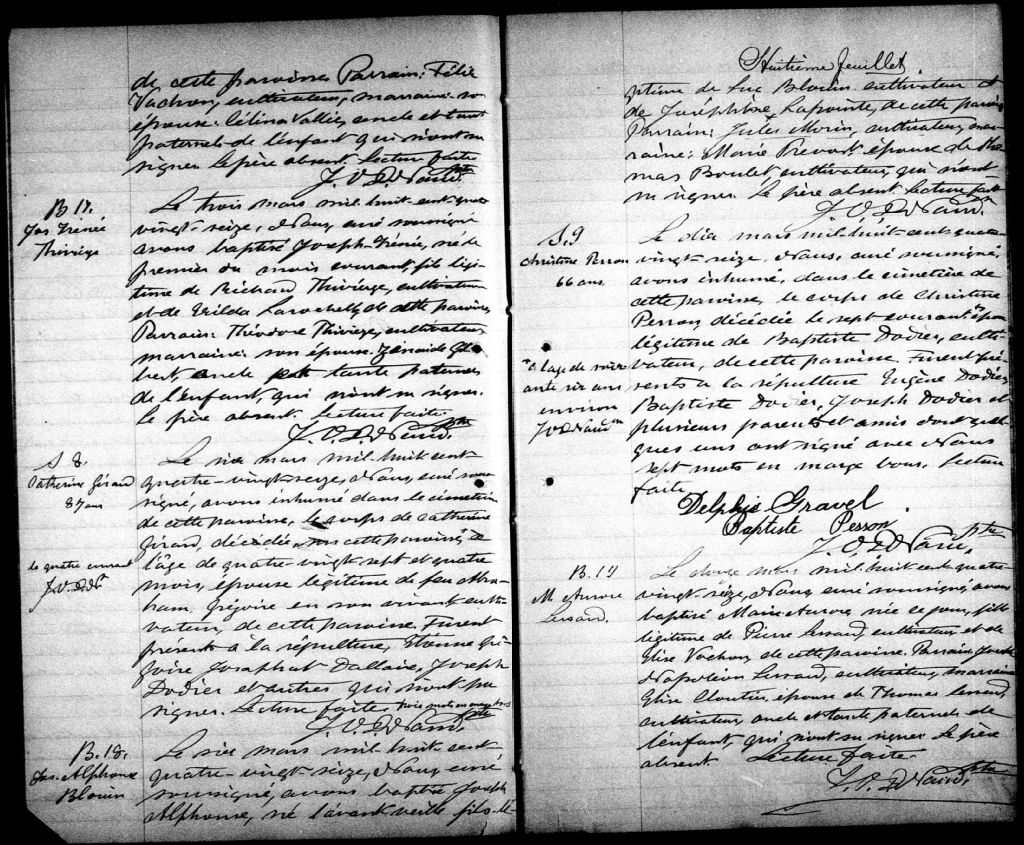 de cette paroisse Parrain: Félix
Vachon, cultivateur, marraine: son
épouse: Célina Vallée, oncle et tante
paternels de l'enfant qui n'ont su
signer. Le père absent. Lecture faite
B 17.
Jos Irénée
Thivièrge
Le trois mars mil-huit-cent-quatre
vingt-seize, Nous, curé soussigné
avons baptisé Joseph-Irénée, né le
premier du mois courant, fils légi-
time de Richard Thivierge, cultivateur
et de Exilda Larochelle, de cette paroisse
Parrain: Théodore Thivierge, cultivateur,
marraine: son épouse Zénaïde
bert, oncle et tante paternels
de l'enfant, qui n'ont su signer.
Le père absent. Lecture faite.
S 8.
Catherine Girard
87 ans
Le six mars mil huit cent
quatre-vingt-seize, Nous, curé sous-
signé, avons inhumé dans le cimetière
de cette paroisse, le corps de Catherine
Girard, décédée cette paroisse, à
le quatre courant
l'âge de quatre-vingt-sept et quatre
mois, épouse légitime de feu Abra-
ham Grégoire en son vivant culti-
vateur, de cette paroisse. Furent
présents à la sépulture, Etienne Gré-
goire Josaphat Dallaire, Joseph
Dodier et autres qui n'ont pu
signer. Lecture faite. trois mots en marge bons
B. 18.
Jos. Alphonse
Blouin
Le six mars mil huit cent
quatre-vingt-seize, Nous, curé
soussigné, avons baptisé Joseph
Alphonse, né l'avant veille fils-lé
Huitième feuillet
gitime de Luc Blouin cultivateur et
de Joséphine Lapointe, de cette paroisse
Parrain: Jules Morin, cultivateur, mar-
raine: Marie Prevost épouse de Tho-
mas Boulet, cultivateur, qui n'ont
su signer. Le père absent. Lecture faite
S. 9
Christine Perron
66 ans
Le dix mars mil-huit-cent quatre
vingt-seize, Nous, curé soussigné,
avons inhumé, dans le cimetière de
cette paroisse, le corps de Christine
Perron, décédée le sept courant épouse
légitime de Baptiste Dodier, culti-
à l'age de soix-
ante six ans
environ
vateur, de cette paroisse. Furent pré-
sents à la sépulture Eugène Dodier
Baptiste Dodier, Joseph Dodier et
plusieurs parents et amis dont quel-
ques uns ont signé avec Nous
sept mots en marge bons. Lecture
faite
Delphis Gravel
Baptiste Perron
B. 19
M Aurore
Lessard.
Le douze mars mil huit cent quatre
vingt-seize, Nous, curé soussigné, avons
baptisé Marie Aurore, née ce jour, fille
légitime de Pierre Lessard, cultivateur et de
Elise Vachon, de cette paroisse. Parrain, Joseph
Napoléon Lessard, cultivateur, marraine
Elise Cloutier, épouse de Thomas Lessard,
cultivateur, oncle et tante paternels de
l'enfant, qui n'ont su signer. Le père
absent Lecture faite.